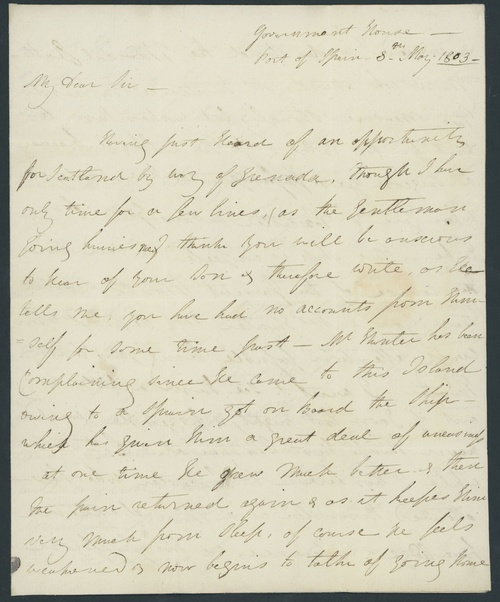 Government House —
Port of Spain 8th May 1803 —
My Dear Sir —
Having just Heard of an opportunity
for Scotland by way of Grenada, though I have
only time for a few lines, (as the Gentleman
going hurries me) I think you will be anxious
to hear of your Son & therefore write, as He
tells me, you have had no accounts from Him
=self for some time past — Mr Hunter has been
Complaining since He came to this Island
owing to a Sprain got on board the Ship —
which has given Him a great deal of uneasiness
at one time He grew much better & then
the pain returned again & as it keeps Him
very much from Sleep, of course He feels
weakened & now begins to talk of going Home